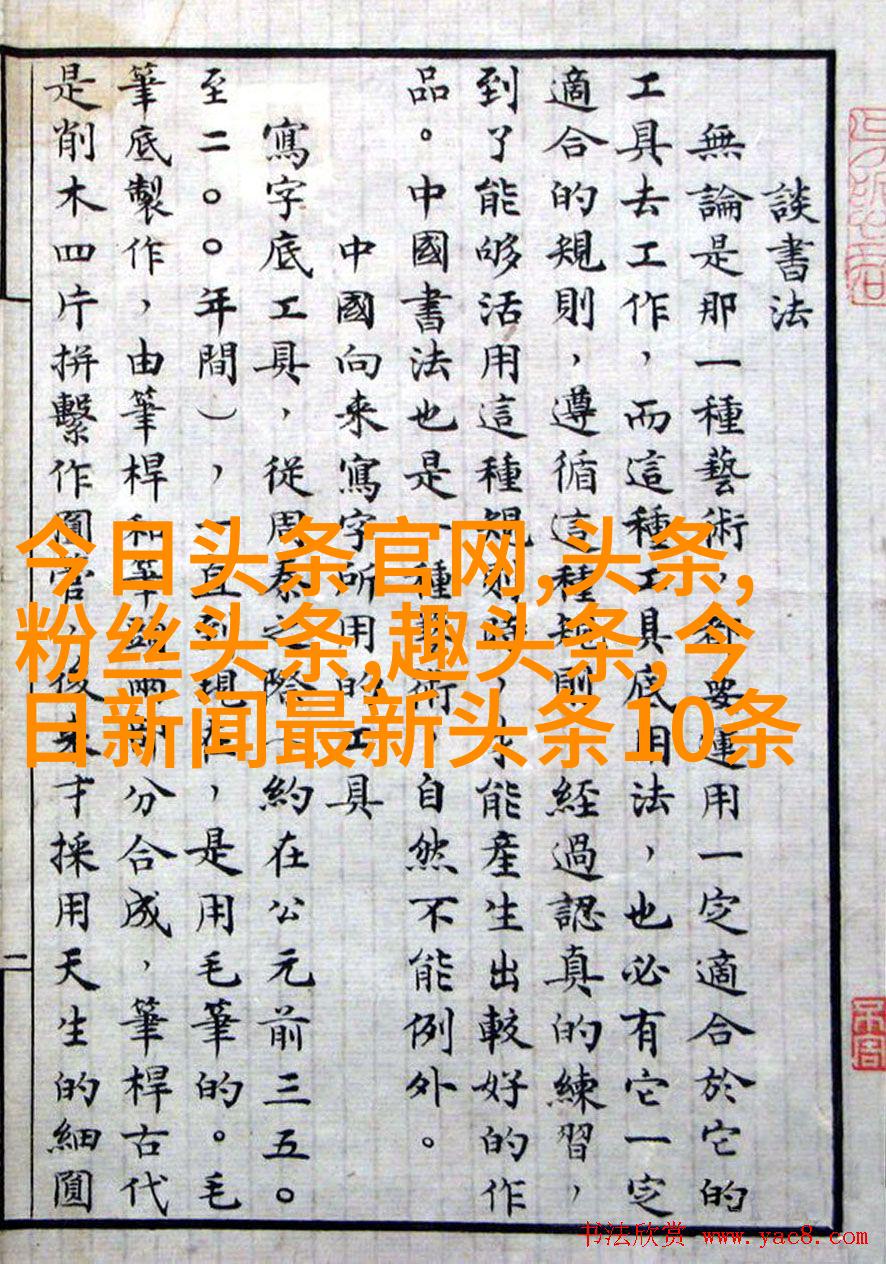 談書法
無論是那一種藝術，都要運用一定適合於它的
工具去工作，而這種工具底用法，也必有它一定
適合的規則，遵循這種規則，經過認真的練習，
到了能够活用這種規則時，才能產生出較好的作
品。中國書法也是一種藝術，自然不能例外。
中國向来寫字所用的工具
寫字底工具，從周秦之際（約在公元前三五〇
至二〇〇年間），一直到現在，是用毛筆的。毛
筆底製作，由筆桿和筆頭兩部分合成，筆桿古代
是削木四片拼繫作圓管，後来才採用天生的細圓
二
今日头条官网,头条,
粉丝头条,趣头条,今
日新闻最新头条10条
书法欣赏 www.yac8.com